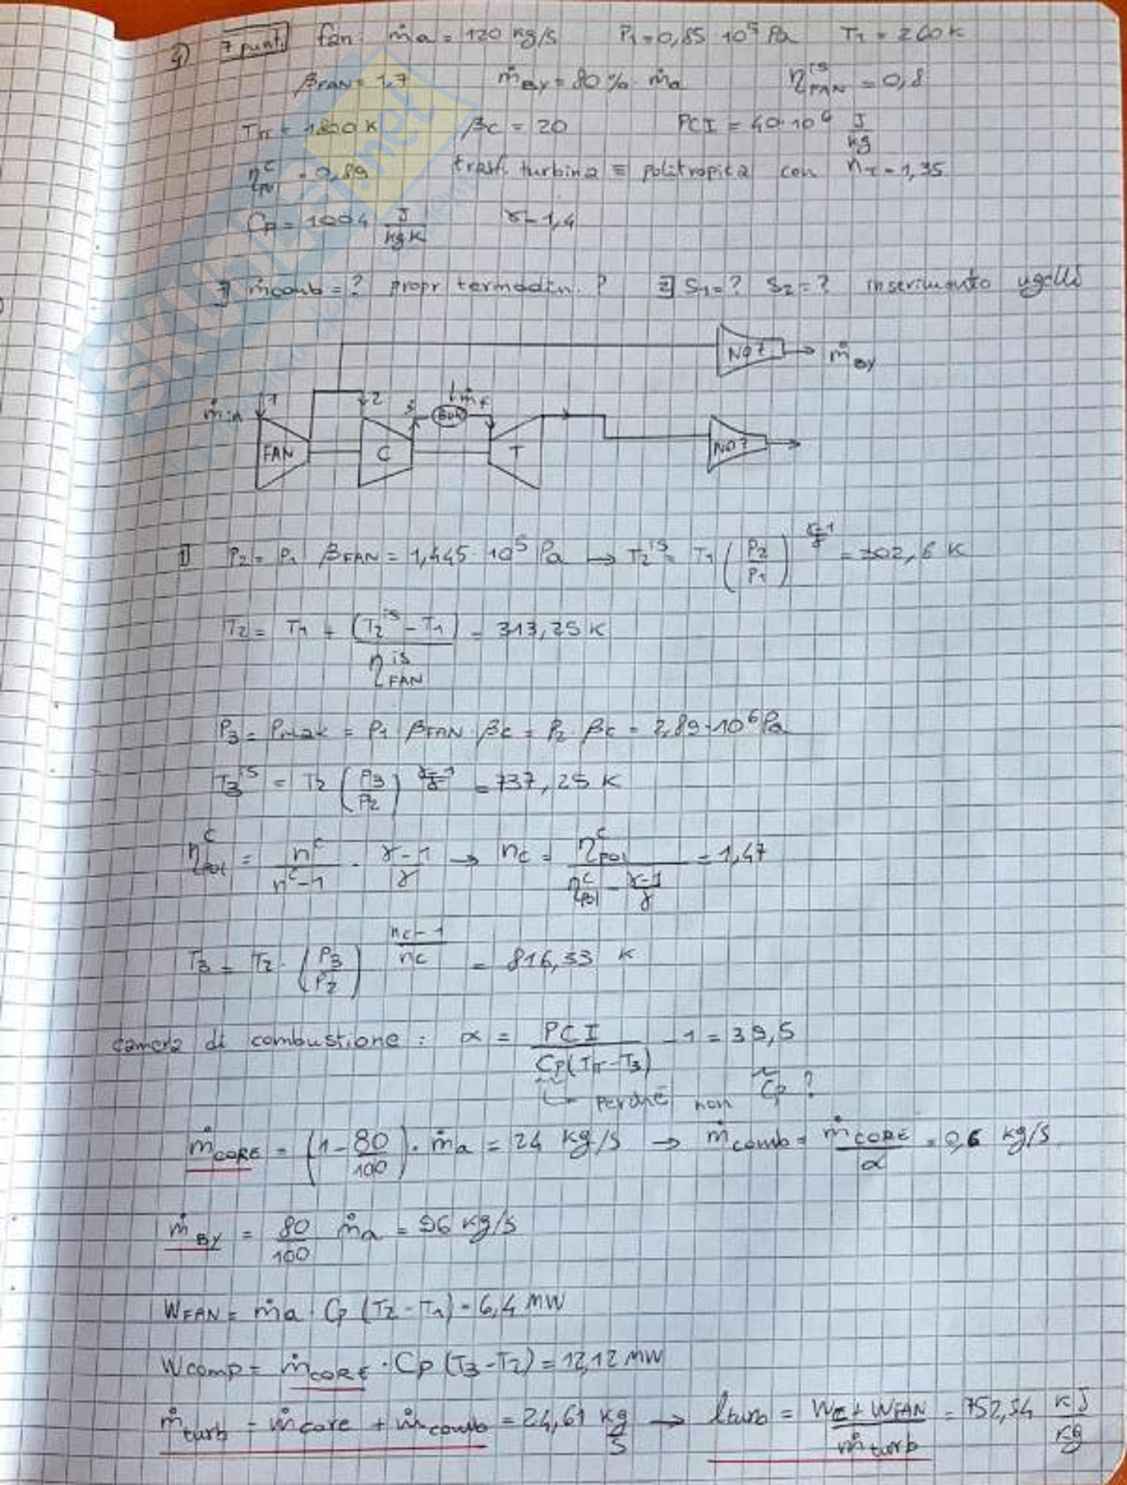 4) 7 punti fan ṁa = 120 kg/s P1 = 0,85 10⁵ Pa T1 = 260 K
βFAN = 1,7 ṁBY = 80% ṁa η^is_FAN = 0,8
TIT = 1800 K βc = 20 PCI = 40·10⁶ J/kg
η^c_pol = 0,89 trasf. turbina ≡ politropica con nT = 1,35
Cp = 1004 J/kgK γ = 1,4
1] ṁcomb = ? propr termodin. ? 2] S1 = ? S2 = ? inserimento ugelli
NOZ → ṁBY
ṁa 1 2 3 BUR ṁf
FAN C T NOZ
1] P2 = P1 βFAN = 1,445 10⁵ Pa → T2^is = T1 (P2/P1)^((γ-1)/γ) = 302,6 K
T2 = T1 + (T2^is - T1)/η^is_FAN = 313,25 K
P3 = Pmax = P1 βFAN · βc = P2 βc = 2,89·10⁶ Pa
T3^is = T2 (P3/P2)^((γ-1)/γ) = 737,25 K
η^c_pol = n^c/(n^c-1) · (γ-1)/γ → nc = η^c_pol/(η^c_pol - (γ-1)/γ) = 1,47
T3 = T2 · (P3/P2)^((nc-1)/nc) = 816,33 K
camera di combustione : α = PCI/(Cp(TIT-T3)) - 1 = 39,5
↳ perché non C̃p ?
ṁCORE = (1 - 80/100) · ṁa = 24 kg/s → ṁcomb = ṁCORE/α = 0,6 kg/s
ṁBY = 80/100 ṁa = 96 kg/s
WFAN = ṁa · Cp (T2 - T1) = 6,4 MW
Wcomp = ṁCORE · Cp (T3 - T2) = 12,12 MW
ṁturb = ṁcore + ṁcomb = 24,61 kg/s → lturb = (WC + WFAN)/ṁturb = 752,54 kJ/kg